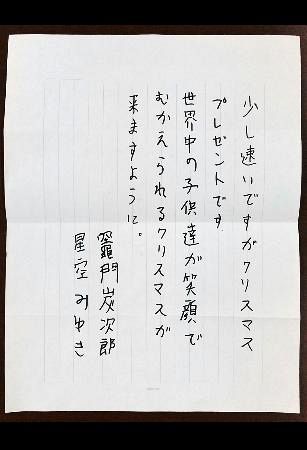 少し速いですがクリスマス
プレゼントです
世界中の子供達が笑顔で
むかえられるクリスマスが
来ますように。
竈門炭次郎
星空みゆき